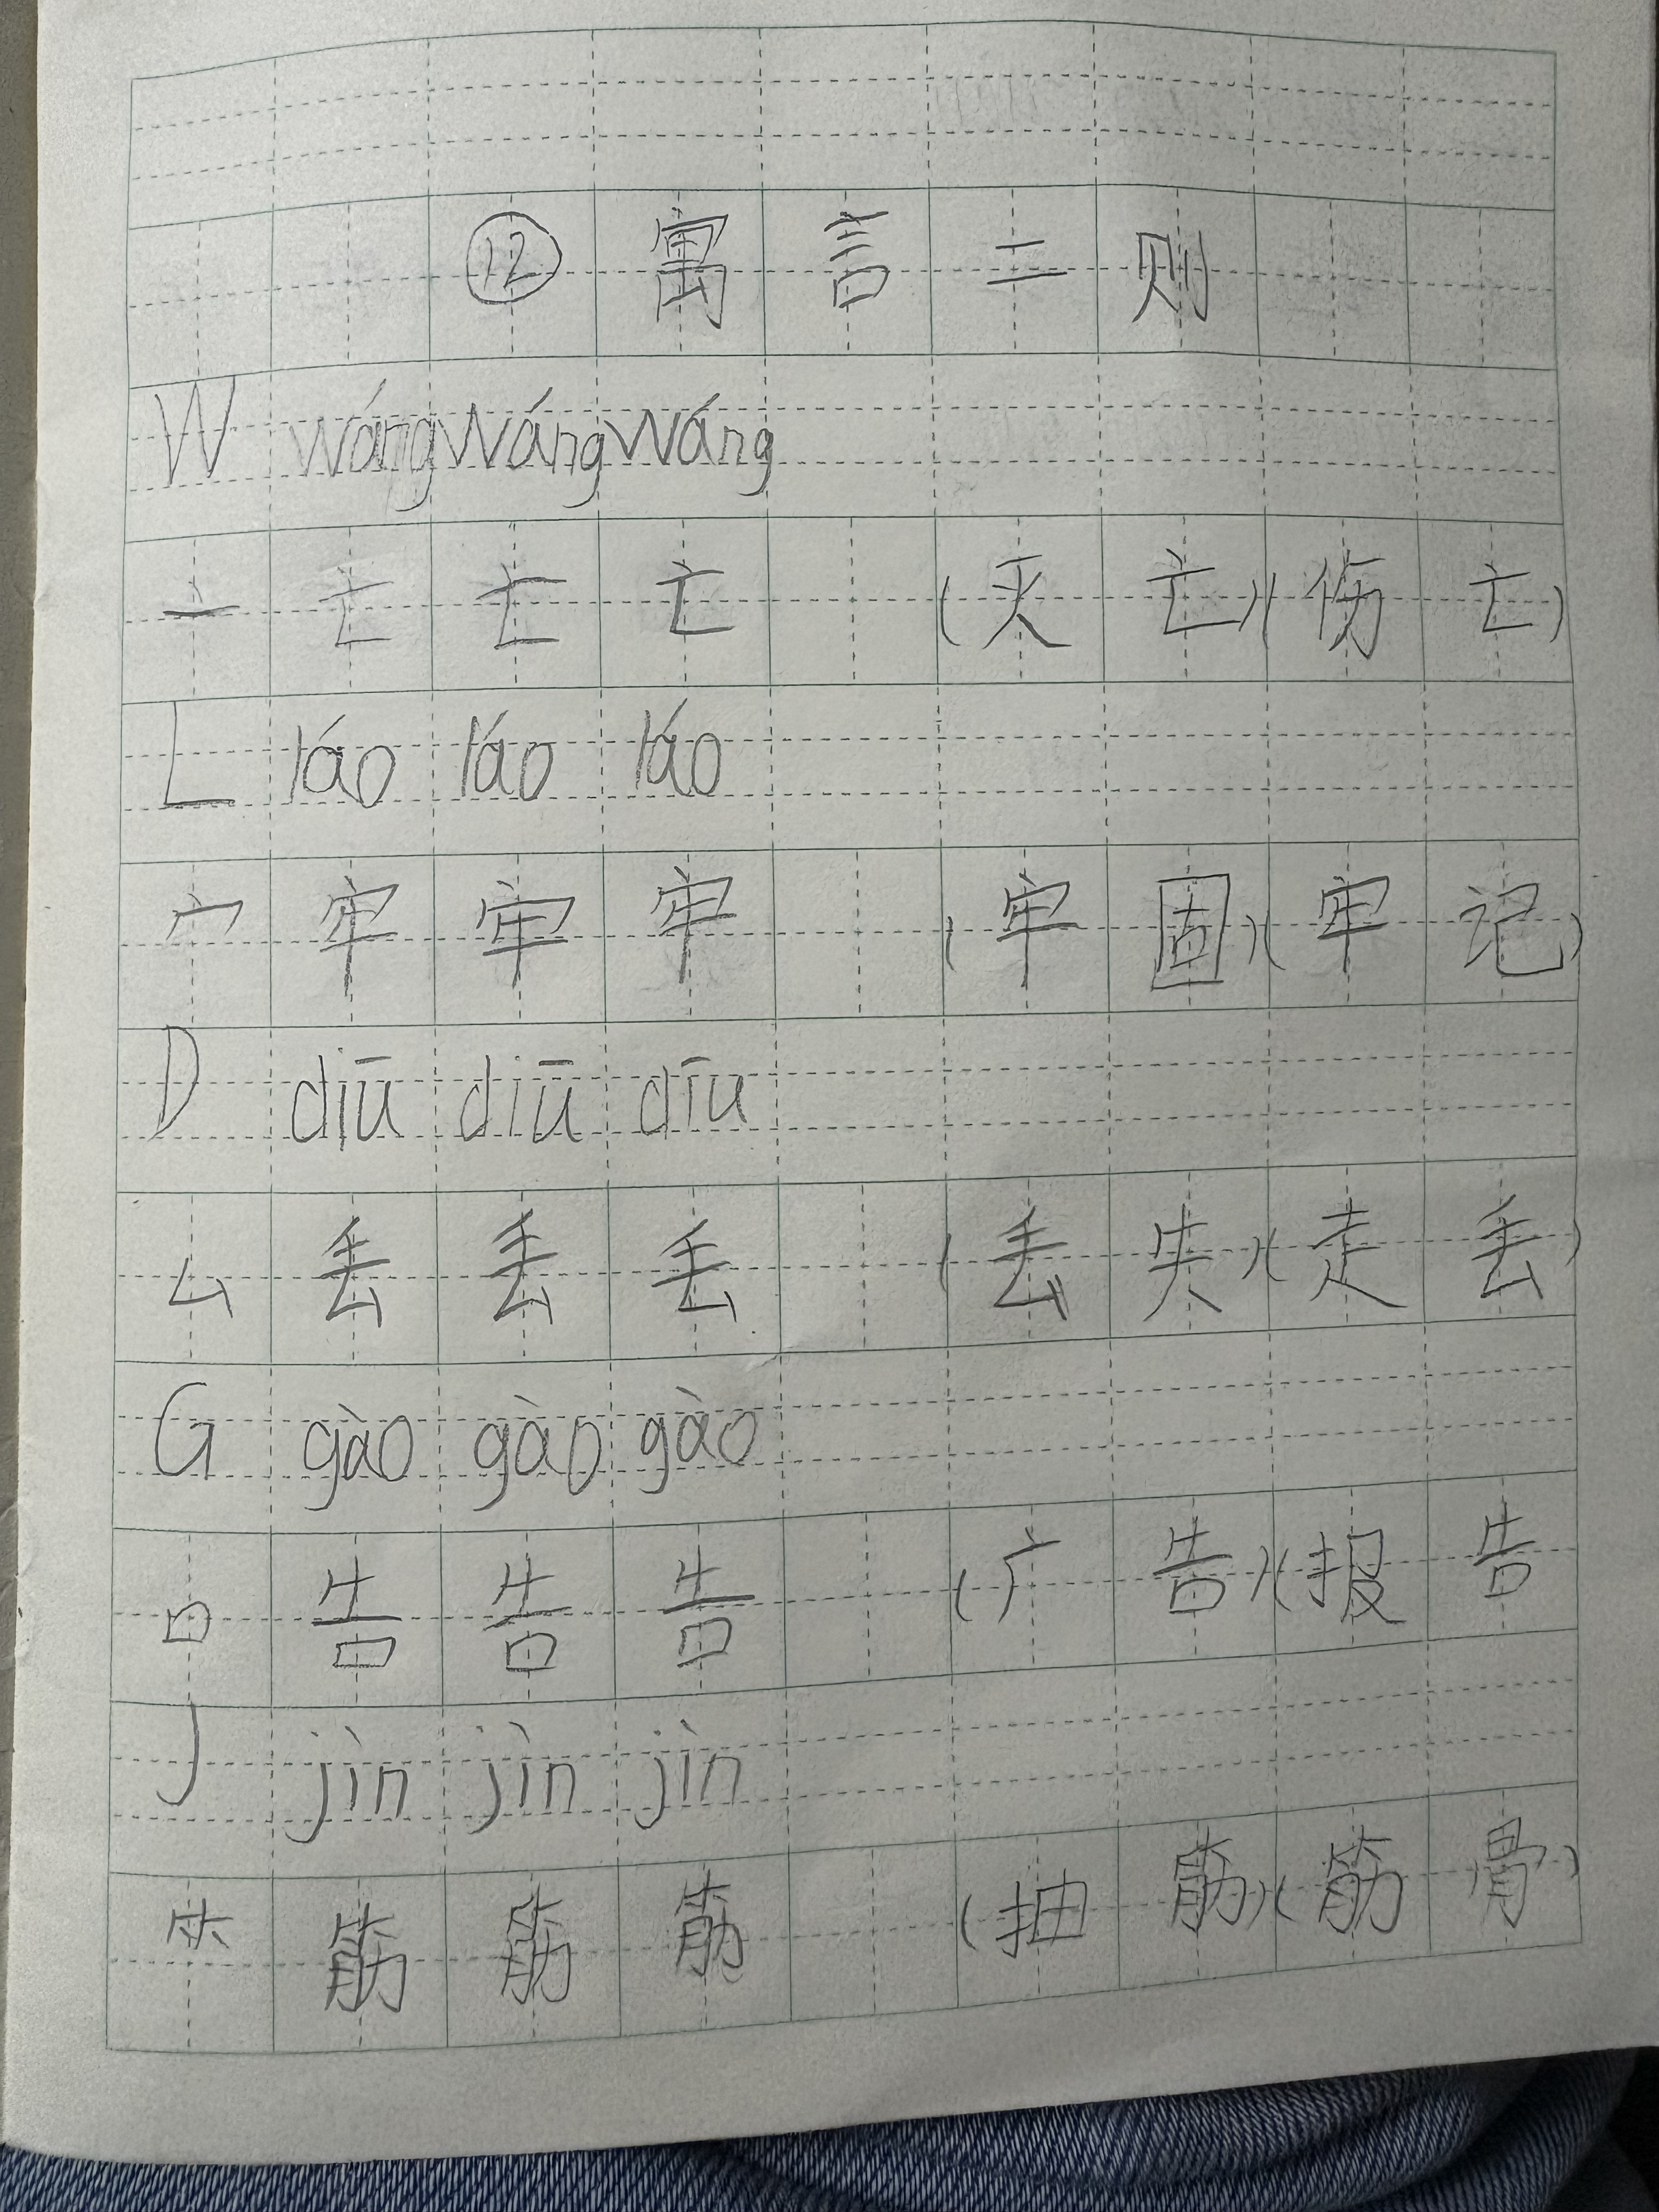 ⑫ 寓言二则
W wáng wáng wáng
亠 亡 亡 亡 (灭亡)(伤亡)
L láo láo láo
宀 牢 牢 牢 (牢固)(牢记)
D diū diū dīu
厶 丢 丢 丢 (丢失)(走丢)
G gào gào gào
口 告 告 告 (广告)(报告
J jìn jìn jìn
⺮ 筋 筋 筋 (抽筋)(筋骨)